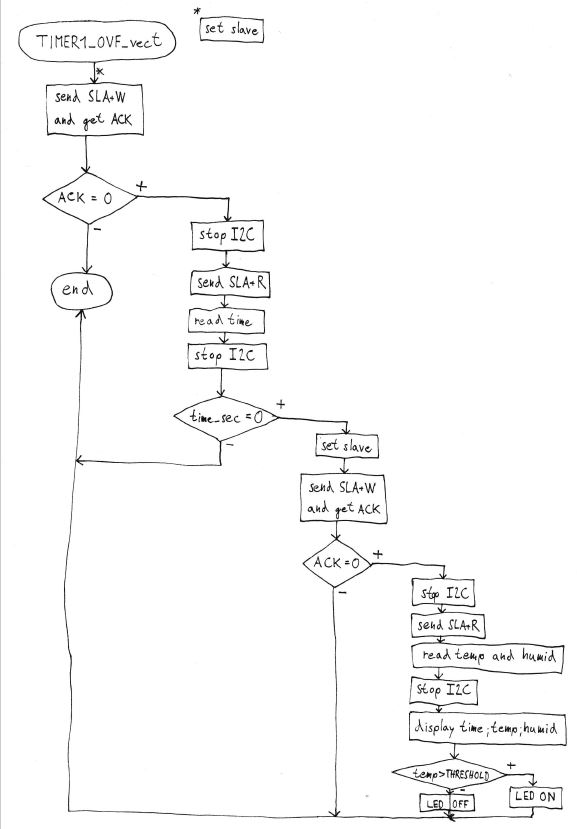 *
set slave
TIMER1_OVF_vect
*
send SLA+W
and get ACK
ACK = 0
+
-
stop I2C
end
send SLA+R
read time
stop I2C
time_sec = 0
+
-
set slave
send SLA+W
and get ACK
ACK = 0
+
-
stop I2C
send SLA+R
read temp and humid
stop I2C
display time;temp;humid
temp>THRESHOLD
+
-
LED ON
LED OFF